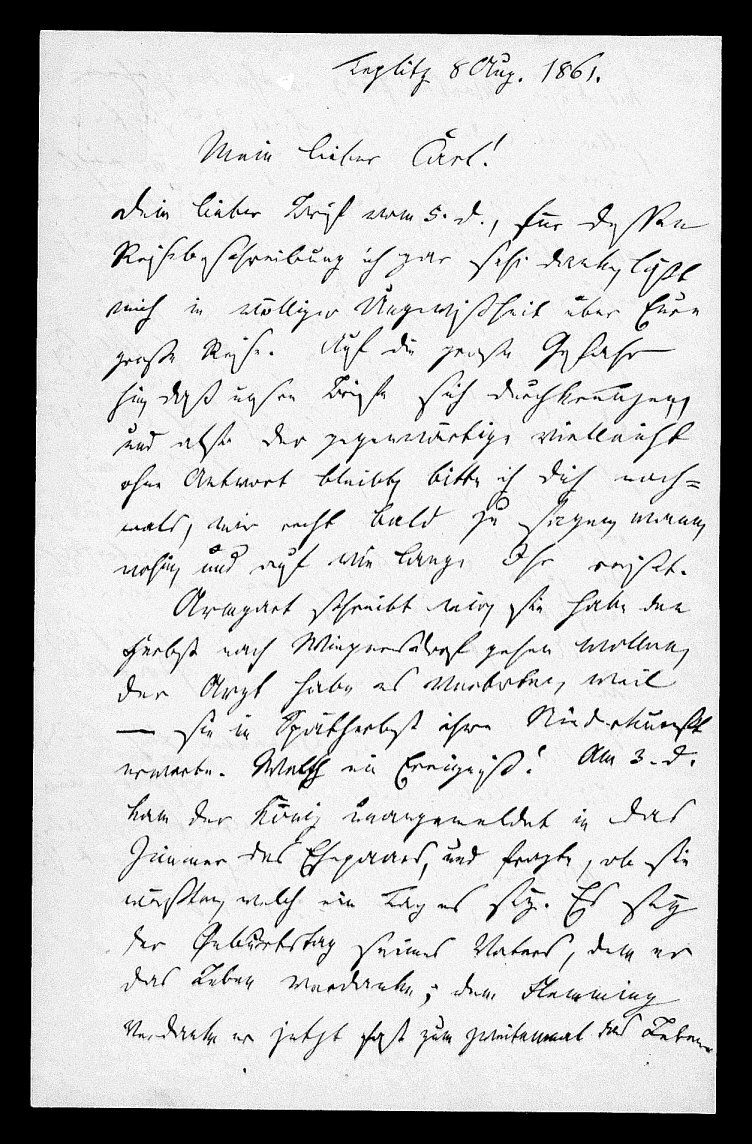 Teplitz 8 Aug. 1861.
Mein lieber Carl!
Dein lieber Brief vom 5. d., für dessen
Reisebeschreibung ich gar sehr danke, läßt
mich in völliger Ungewißheit über Eure
große Reise. Auf die große Gefahr
hin, daß unsere Briefe sich durchkreuzen,
und also der gegenwärtige vielleicht
ohne Antwort bleibt, bitte ich Dich noch=
mals, mir recht bald zu sagen, wann,
wohin, und auf wie lange Ihr reiset.
Armgart schreibt mir, sie habe den
Herbst nach Wiepersdorf gehen wollen,
der Arzt habe es verboten, weil
— sie im Spätherbst ihre Niederkunft
erwarte. Welch ein Ereigniß! Am 3. d.
kam der König unangemeldet in das
Zimmer des Ehepaars, und fragte, ob sie
wüßten, welch ein Tag es sey. Es sey
der Geburtstag seines Vaters, dem er
das Leben verdanke; dem Flemming
verdanke er jetzt fast zum zweitenmal das Leben